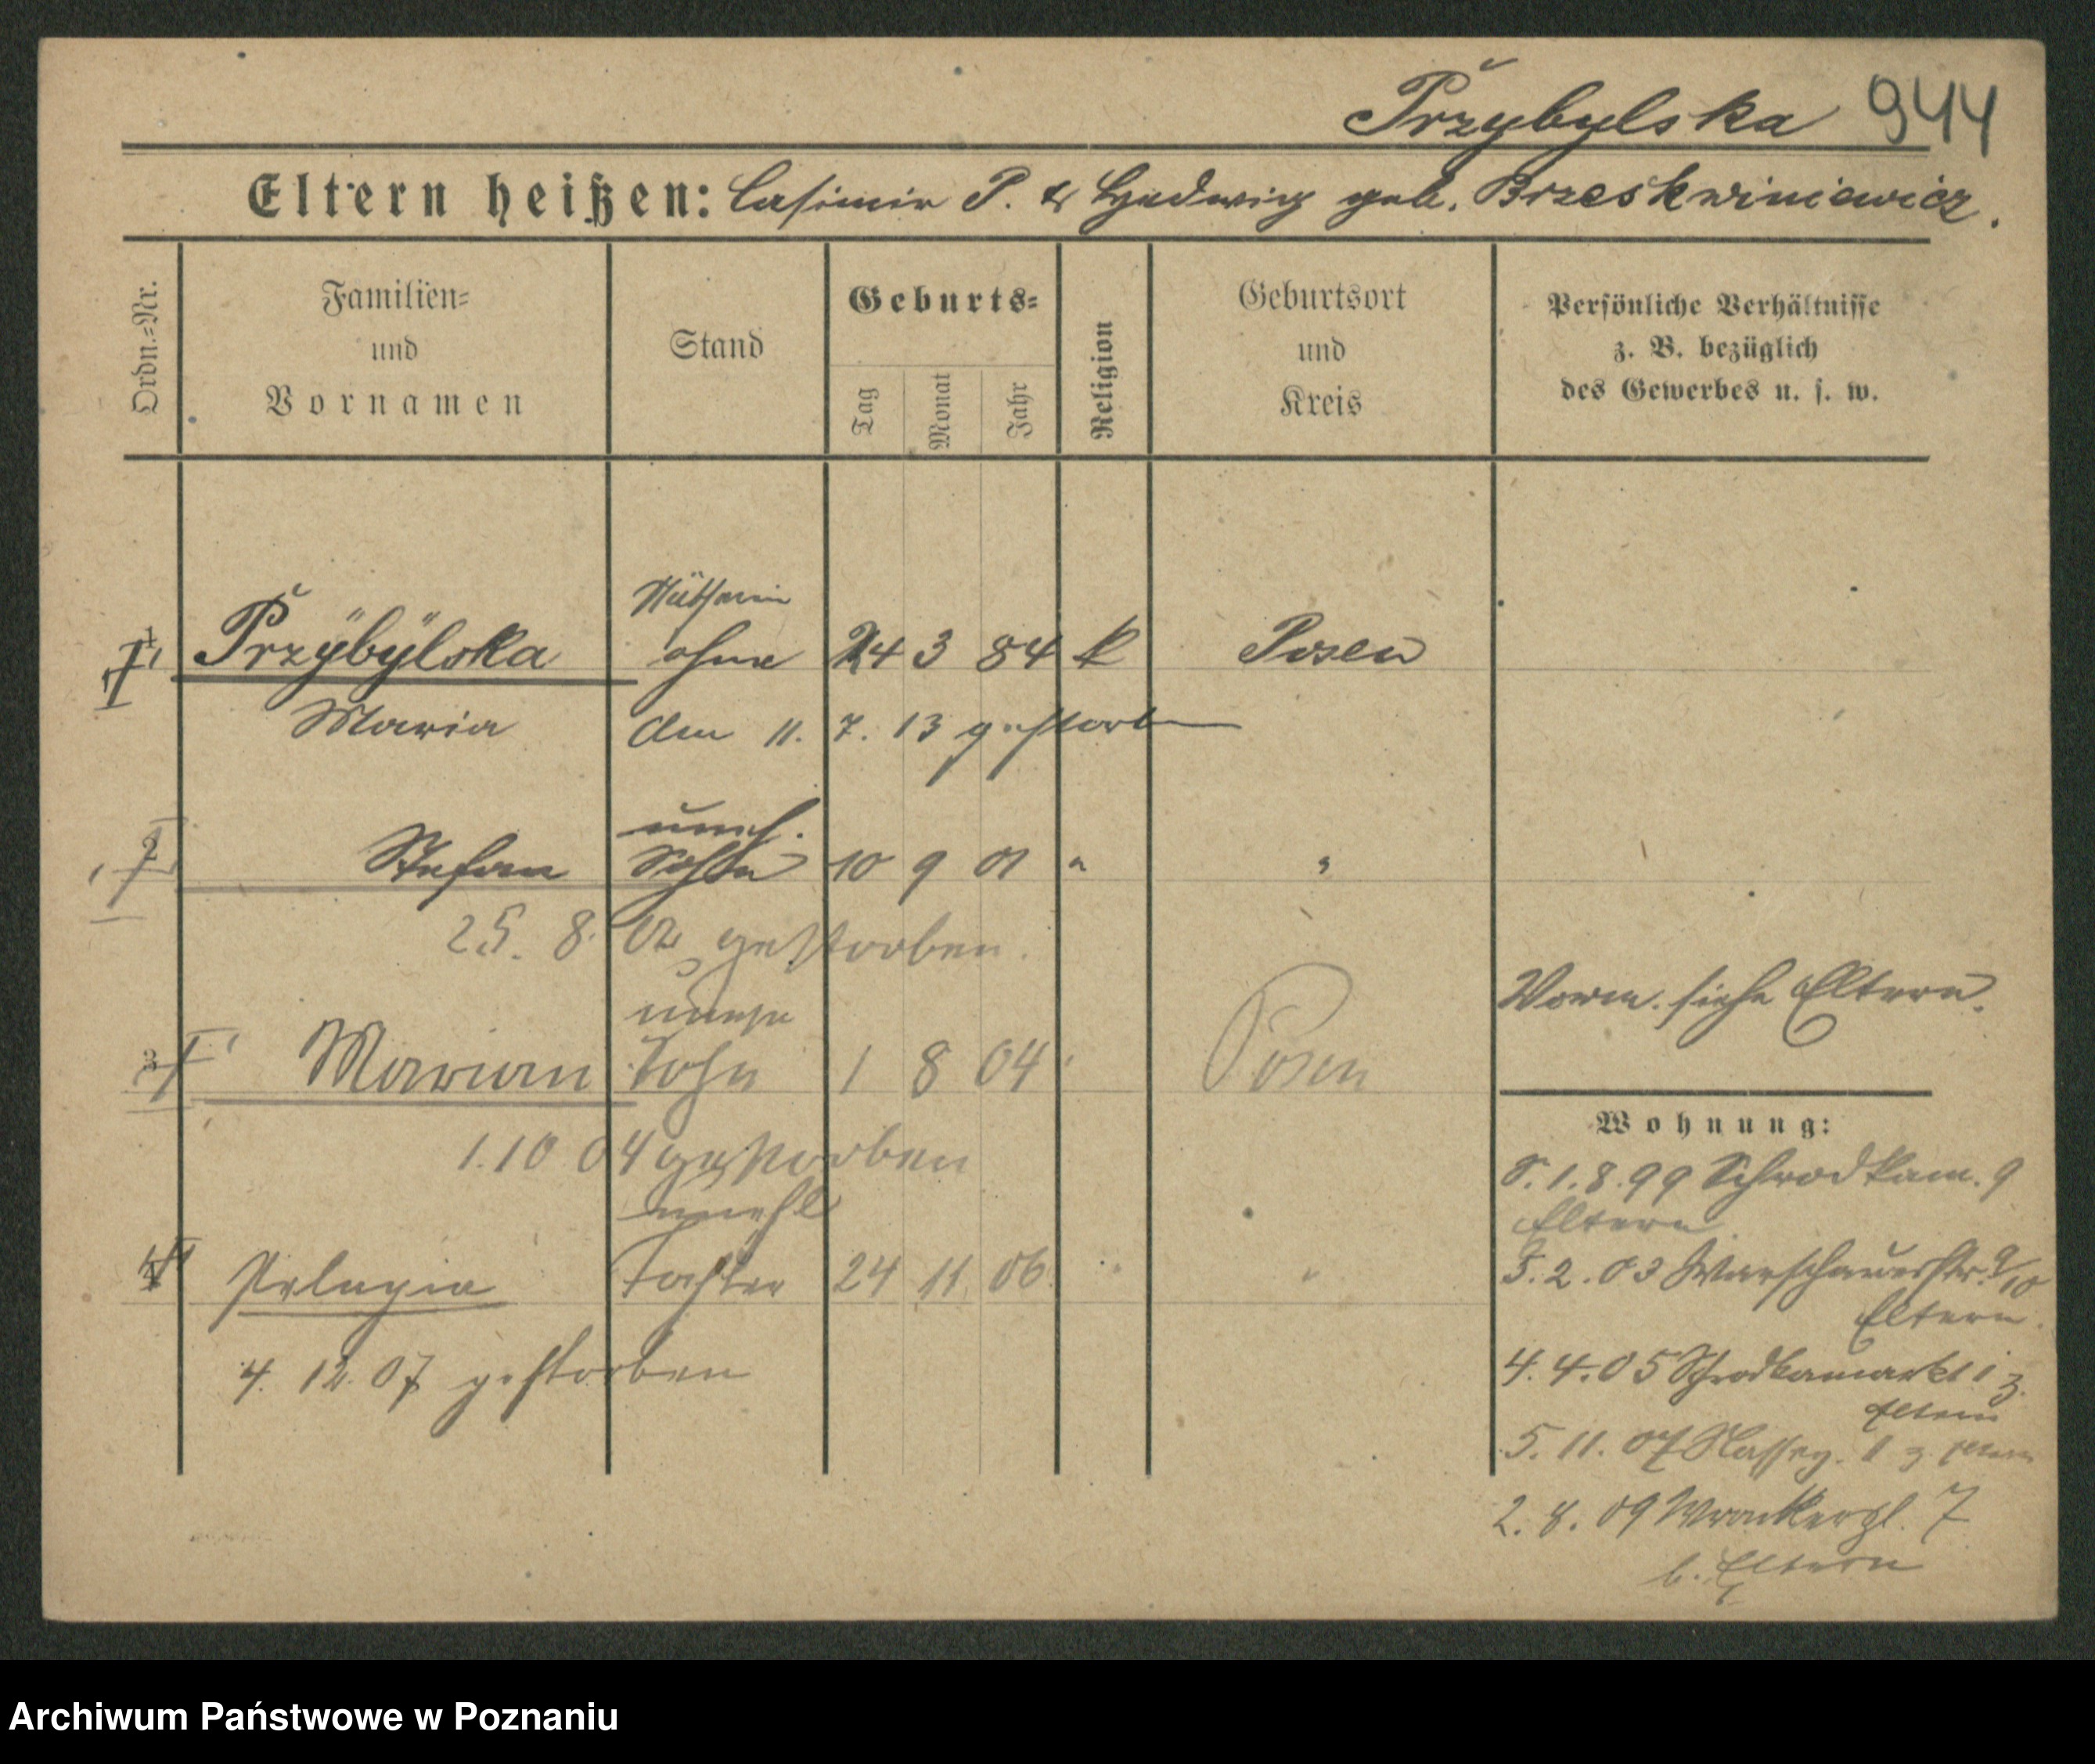 Przybylska 944
Eltern heißen: Casimir P. & Hedwig geb. Brzeskwiniewicz.
Ordn.-Nr.
Familien-
und
Vornamen
Stand
Geburts-
Tag
Monat
Jahr
Religion
Geburtsort
und
Kreis
Persönliche Verhältnisse
z. B. bezüglich
des Gewerbes u. s. w.
Nätherin
1 Przybylska ohne 24 3 84 k Posen
Maria am 11. 7. 13 gestorben
unehl.
2 Stefan Sohn 10 9 01 " "
25. 8. 02 gestorben.
Vorm. siehe Eltern.
unehe
3 Marian Sohn 1 8 04 Posen
1. 10 04 gestorben
Wohnung:
S. 1. 8. 99 Schrodkam. 9
Eltern
unehl
4 Pelagia Tochter 24 11. 06. "
3. 2. 03 Warschauerstr. 9/10
Eltern.
4. 12. 07 gestorben
4. 4. 05 Schrodkamarkt 1 z.
Eltern
5. 11. 07 1 z. Eltern
2. 8. 09 Wronkerpl. 7
b. Eltern
Archiwum Państwowe w Poznaniu